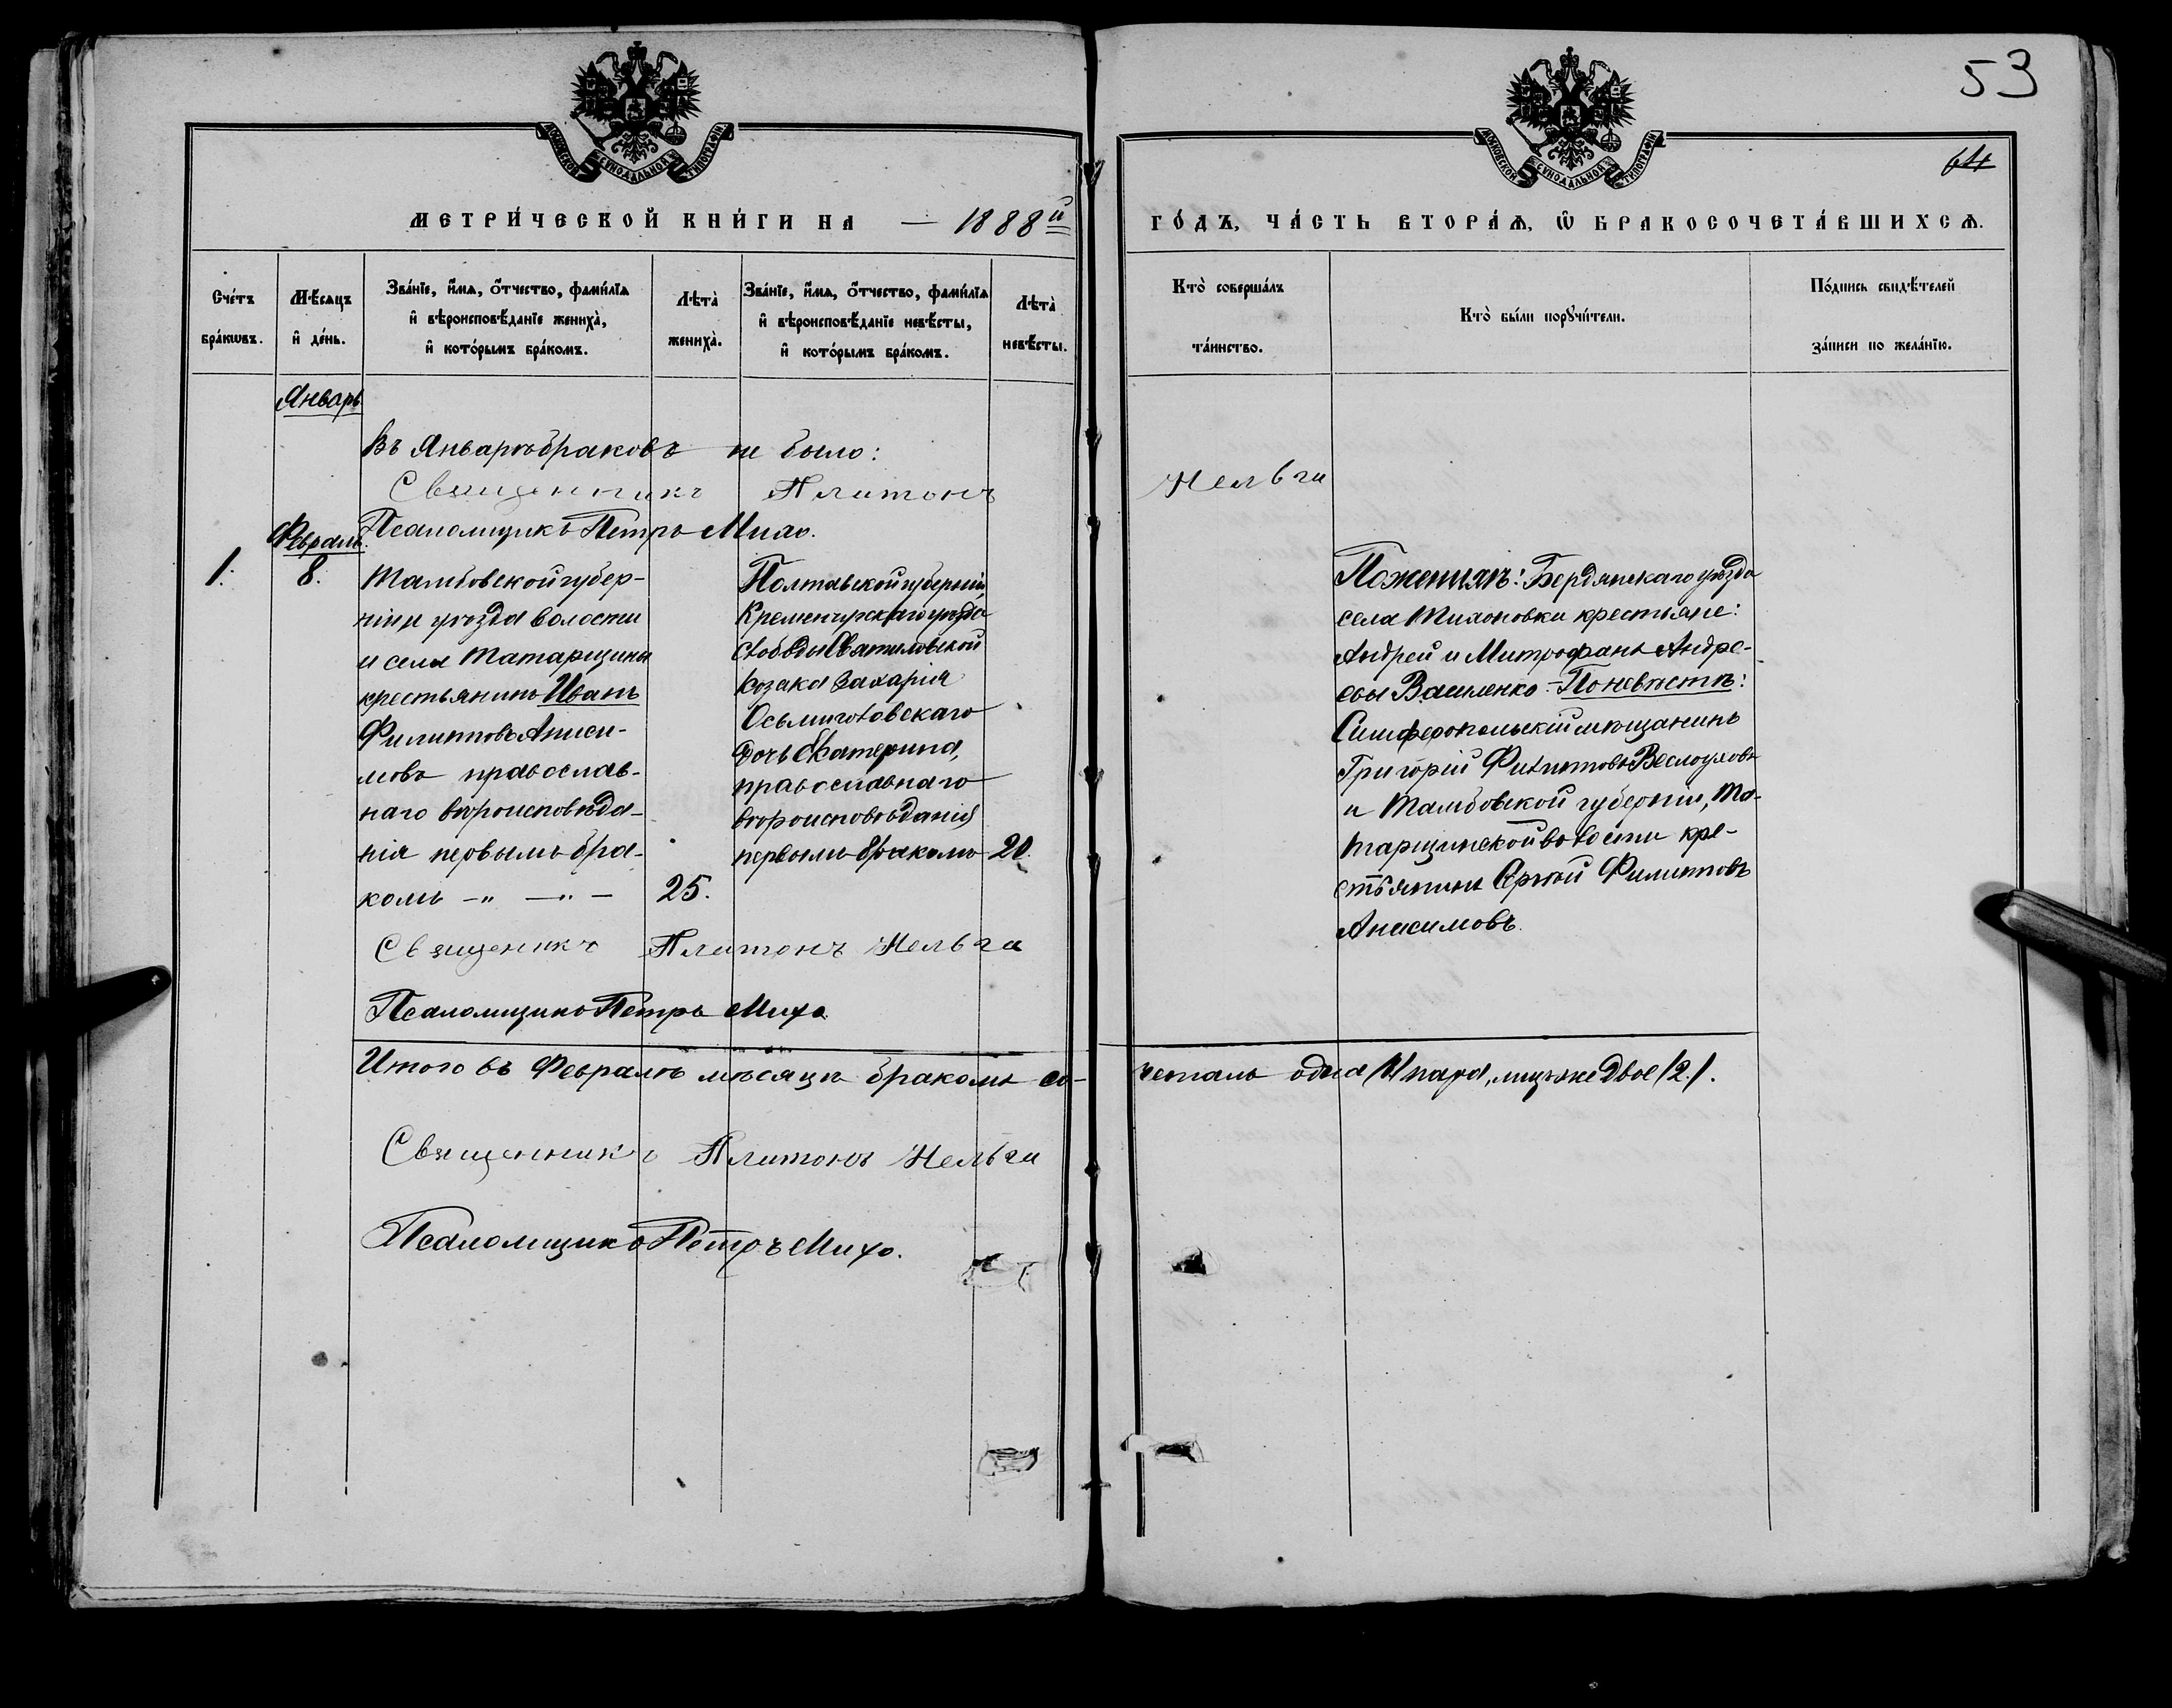 53
64
МОСКОВСКОЙ СѴНОДАЛЬНОЙ ТИПОГРАФІИ
МОСКОВСКОЙ СѴНОДАЛЬНОЙ ТИПОГРАФІИ
МЕТРИ́ЧЕСКОЙ КНИ́ГИ НА — 1888й
ГО́ДЪ, ЧА́СТЬ ВТОРА́Ѧ, Ѽ БРАКОСОЧЕТА́ВШИХСѦ.
Сче́тъ
бра́кѡвъ.
Мѣ́сяцъ
и҆ де́нь.
Зва́нїе, и҆́мѧ, ѻ҆́тчество, фами́лїѧ
и҆ вѣроисповѣ́данїе жениха̀,
и҆ кото́рымъ бра́комъ.
Лѣта̀
жениха̀.
Зва́нїе, и҆́мѧ, ѻ҆́тчество, фами́лїѧ
и҆ вѣроисповѣ́данїе невѣ́сты,
и҆ кото́рымъ бра́комъ.
Лѣта̀
невѣ́сты.
Кто̀ соверша́лъ
та́инство.
Кто̀ бы́ли порꙋчи́тели.
По́дпись свидѣ́телей
за́писи по жела́нїю.
Январь
Въ Январѣ браковъ не было:
Священникъ Платонъ Нельга
Псаломщикъ Петръ Михо.
Февраль.
1. 8.
Тамбовской губер-
ніи и уѣзда волости
и села Татарщины
крестьянинъ Иванъ
Филипповъ Аниси-
мовъ православ-
наго вѣроисповѣда-
нія первымъ бра-
комъ -"- —"- —
25.
Полтавской губерніи,
Кременчугскаго уѣзда
слободы Святиловской
козака Захарія
Осьмиголовскаго
дочь Екатерина,
православнаго
вѣроисповѣданія
первымъ бракомъ
20.
По женихѣ: Бердянскаго уѣзда
села Тихоновки крестьяне:
Андрей и Митрофанъ Андре-
евы Василенко:- По невѣстѣ:
Симферопольскій мѣщанинъ
Григорій Филипповъ Веслоуховъ
и Тамбовской губерніи, Та-
тарщинской волости кре-
стьянинъ Сергѣй Филипповъ
Анисимовъ.
Священикъ Платонъ Нельга
Псаломщикъ Петръ Михо
Итого въ Февралѣ мѣсяцѣ бракомъ со-
четалъ одна /1/ пара, лицъ же двое /2./.
Священникъ Платонъ Нельга
Псаломщикъ Петръ Михо.